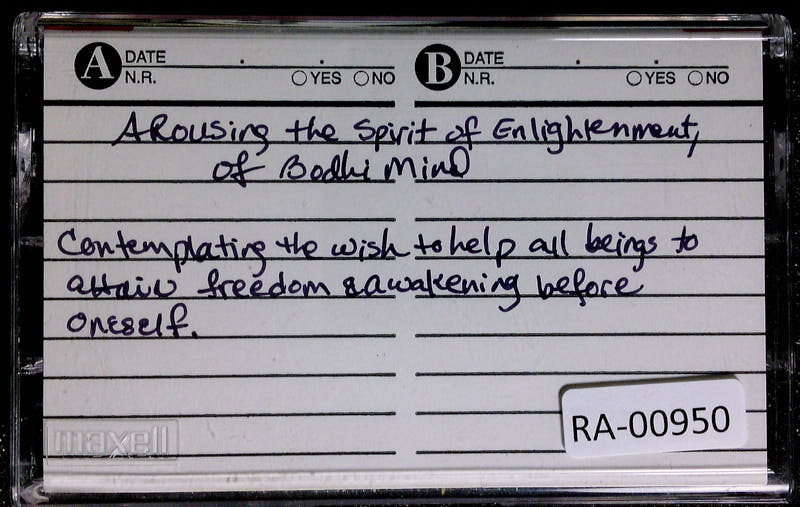 A DATE . . B DATE . .
N.R. YES NO N.R. YES NO
ARousing the Spirit of Enlightenment,
of Bodhi Mind
Contemplating the wish to help all beings to
attain freedom & awakening before
oneself.
RA-00950
maxell